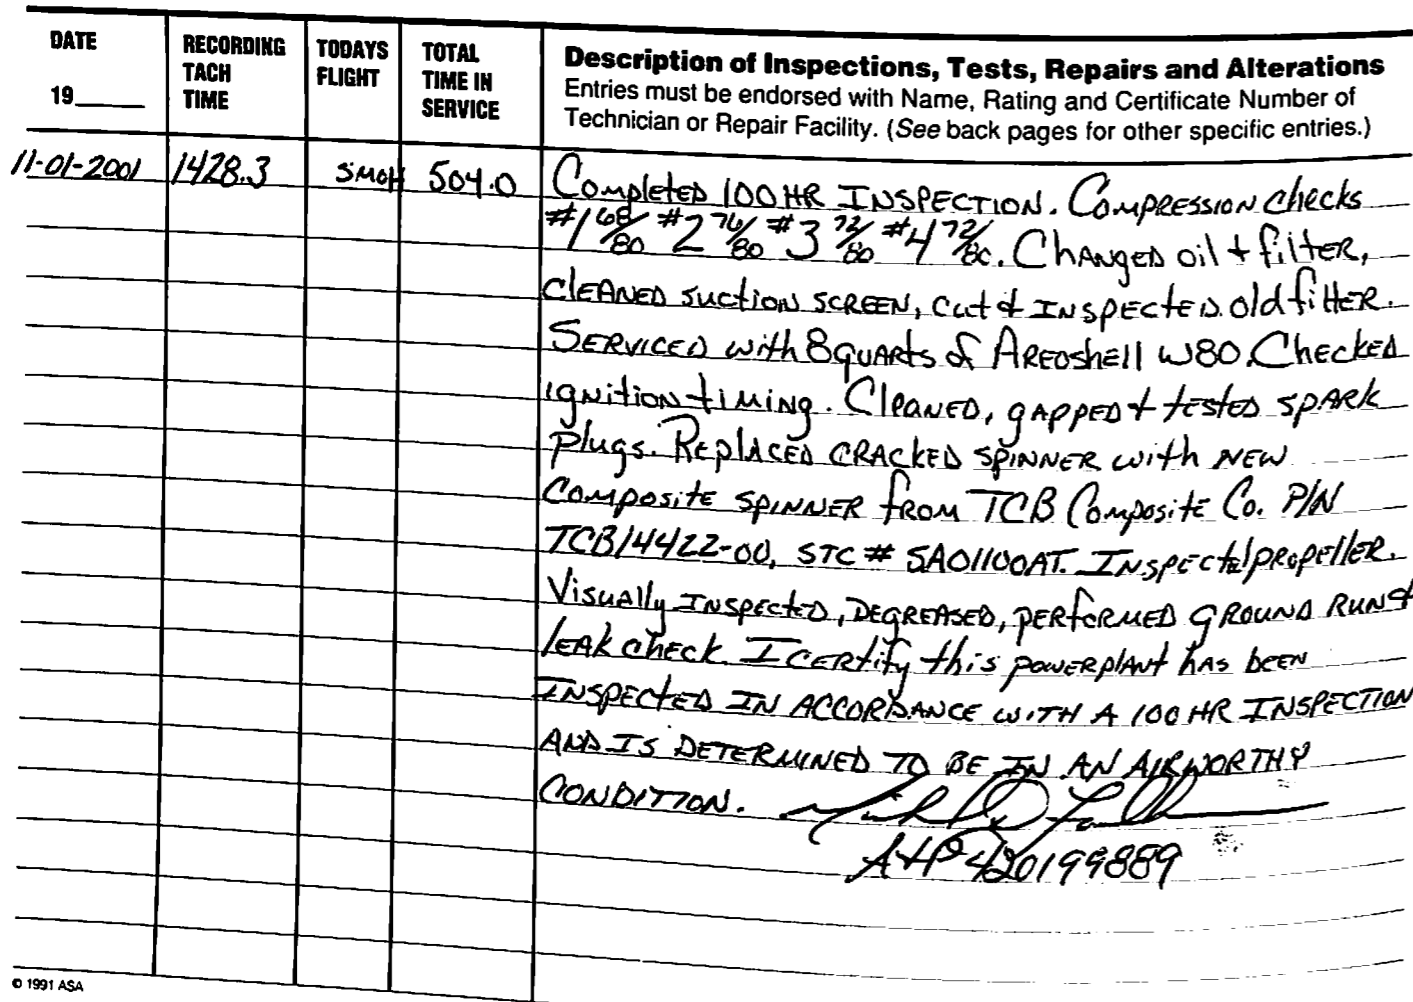 DATE
19____
RECORDING
TACH
TIME
TODAYS
FLIGHT
TOTAL
TIME IN
SERVICE
Description of Inspections, Tests, Repairs and Alterations
Entries must be endorsed with Name, Rating and Certificate Number of
Technician or Repair Facility. (See back pages for other specific entries.)
11-01-2001 1428.3 SMOH 504.0
Completed 100 HR INSPECTION. Compression checks
#1 68/80 #2 76/80 #3 72/80 #4 72/80. Changed oil + filter,
cleaned suction screen, cut & INSPECTED old filter.
SERVICED with 8 quarts of AREOSHELL W80. Checked
ignition timing. Cleaned, gapped + tested spark
plugs. Replaced CRACKED SPINNER with NEW
Composite spinner from TCB Composite Co. P/N
TCB14422-00, STC # SA01100AT. Inspected propeller.
Visually INSPECTED, DEGREASED, performed GROUND RUN &
leak check. I certify this powerplant has been
INSPECTED IN ACCORDANCE WITH A 100 HR INSPECTION
AND IS DETERMINED TO BE IN AN AIRWORTHY
CONDITION.
A+P 420199889
© 1991 ASA